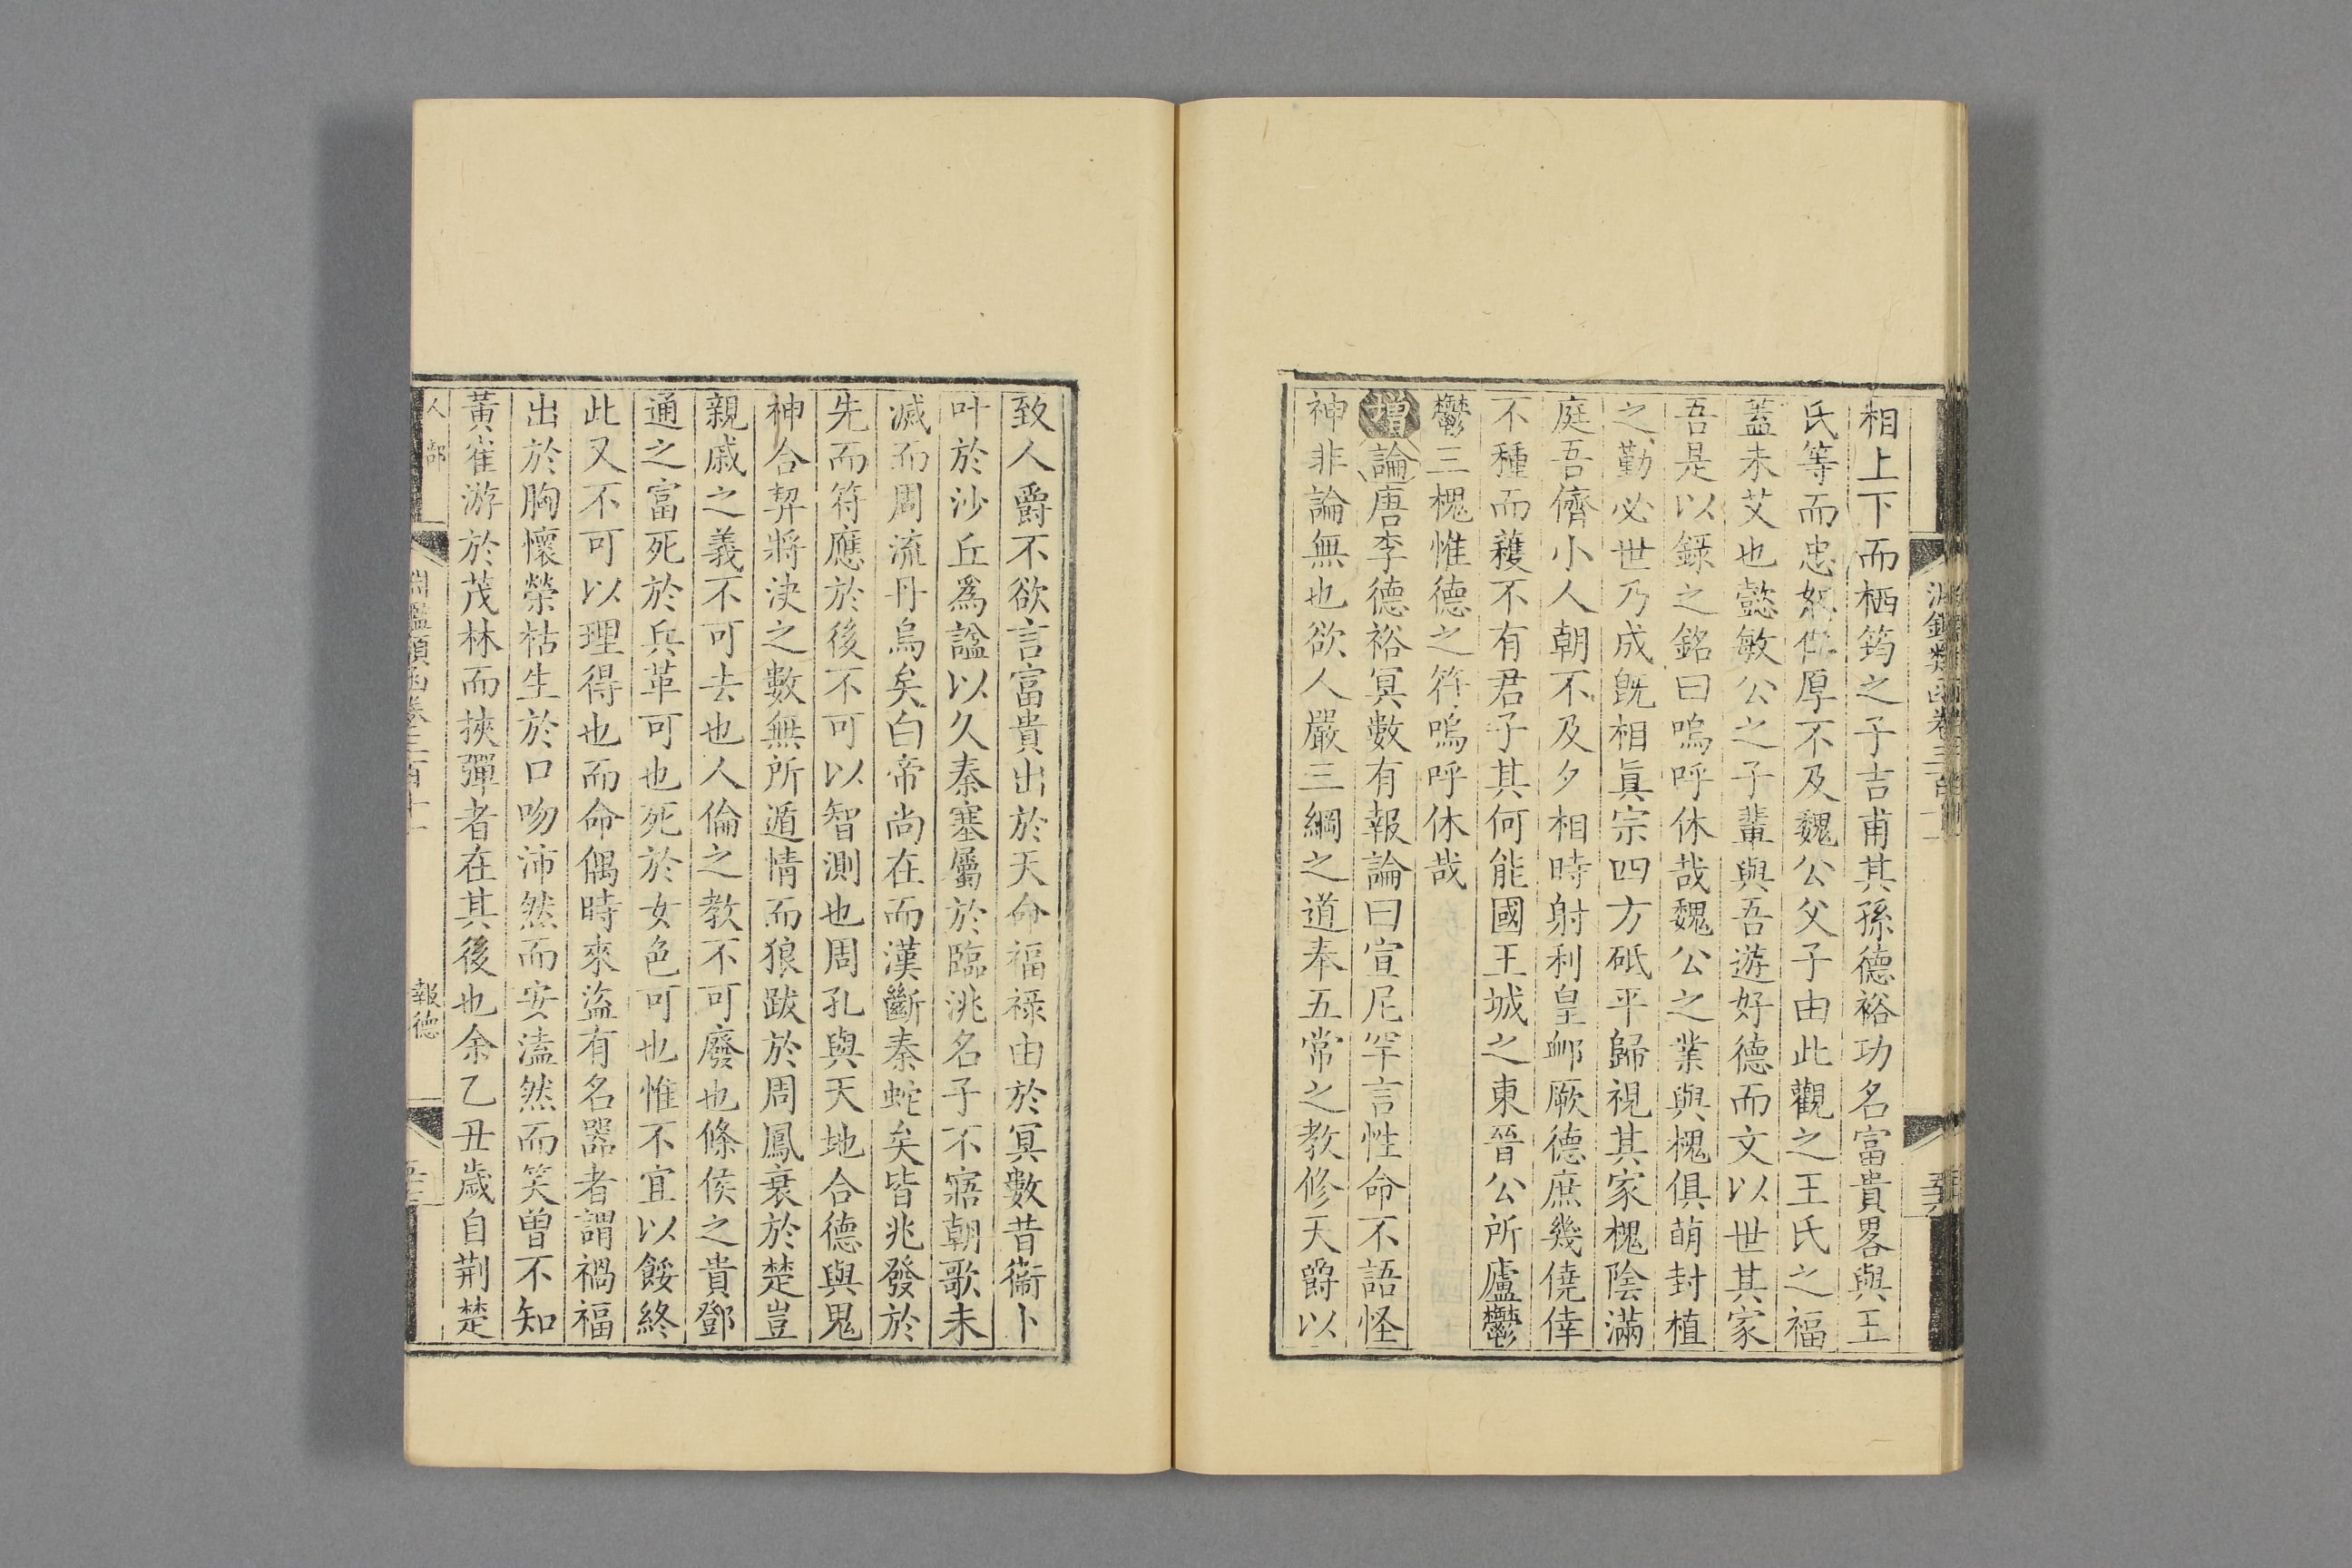 相上下而栖筠之子吉甫其孫德裕功名富貴畧與王
氏等而忠恕仁厚不及魏公父子由此觀之王氏之福
蓋未艾也懿敏公之子鞏與吾遊好德而文以世其家
吾是以錄之銘曰嗚呼休哉魏公之業與槐俱萌封植
之勤必世乃成旣相眞宗四方砥平歸視其家槐陰滿
庭吾儕小人朝不及夕相時射利皇卹厥德庶幾僥倖
不種而穫不有君子其何能國王城之東晉公所廬鬱
鬱三槐惟德之符嗚呼休哉
增論唐李德裕冥數有報論曰宣尼罕言性命不語怪
神非論無也欲人嚴三綱之道奉五常之教修天爵以
致人爵不欲言富貴出於天命福祿由於冥數昔衞卜
叶於沙丘爲諡以久秦塞屬於臨洮名子不寤朝歌未
滅而周流丹烏矣白帝尚在而漢斷秦蛇矣皆兆發於
先而符應於後不可以智測也周孔與天地合德與鬼
神合契將決之數無所遁情而狼跋於周鳳衰於楚豈
親戚之義不可去也人倫之教不可廢也條侯之貴鄧
通之富死於兵革可也死於女色可也惟不宜以餒終
此又不可以理得也而命偶時來盜有名器者謂禍福
出於胸懷榮枯生於口吻沛然而安溘然而笑曾不知
黃雀游於茂林而挾彈者在其後也余乙丑歲自荆楚
人部
淵鑑類函卷三百十一
報德